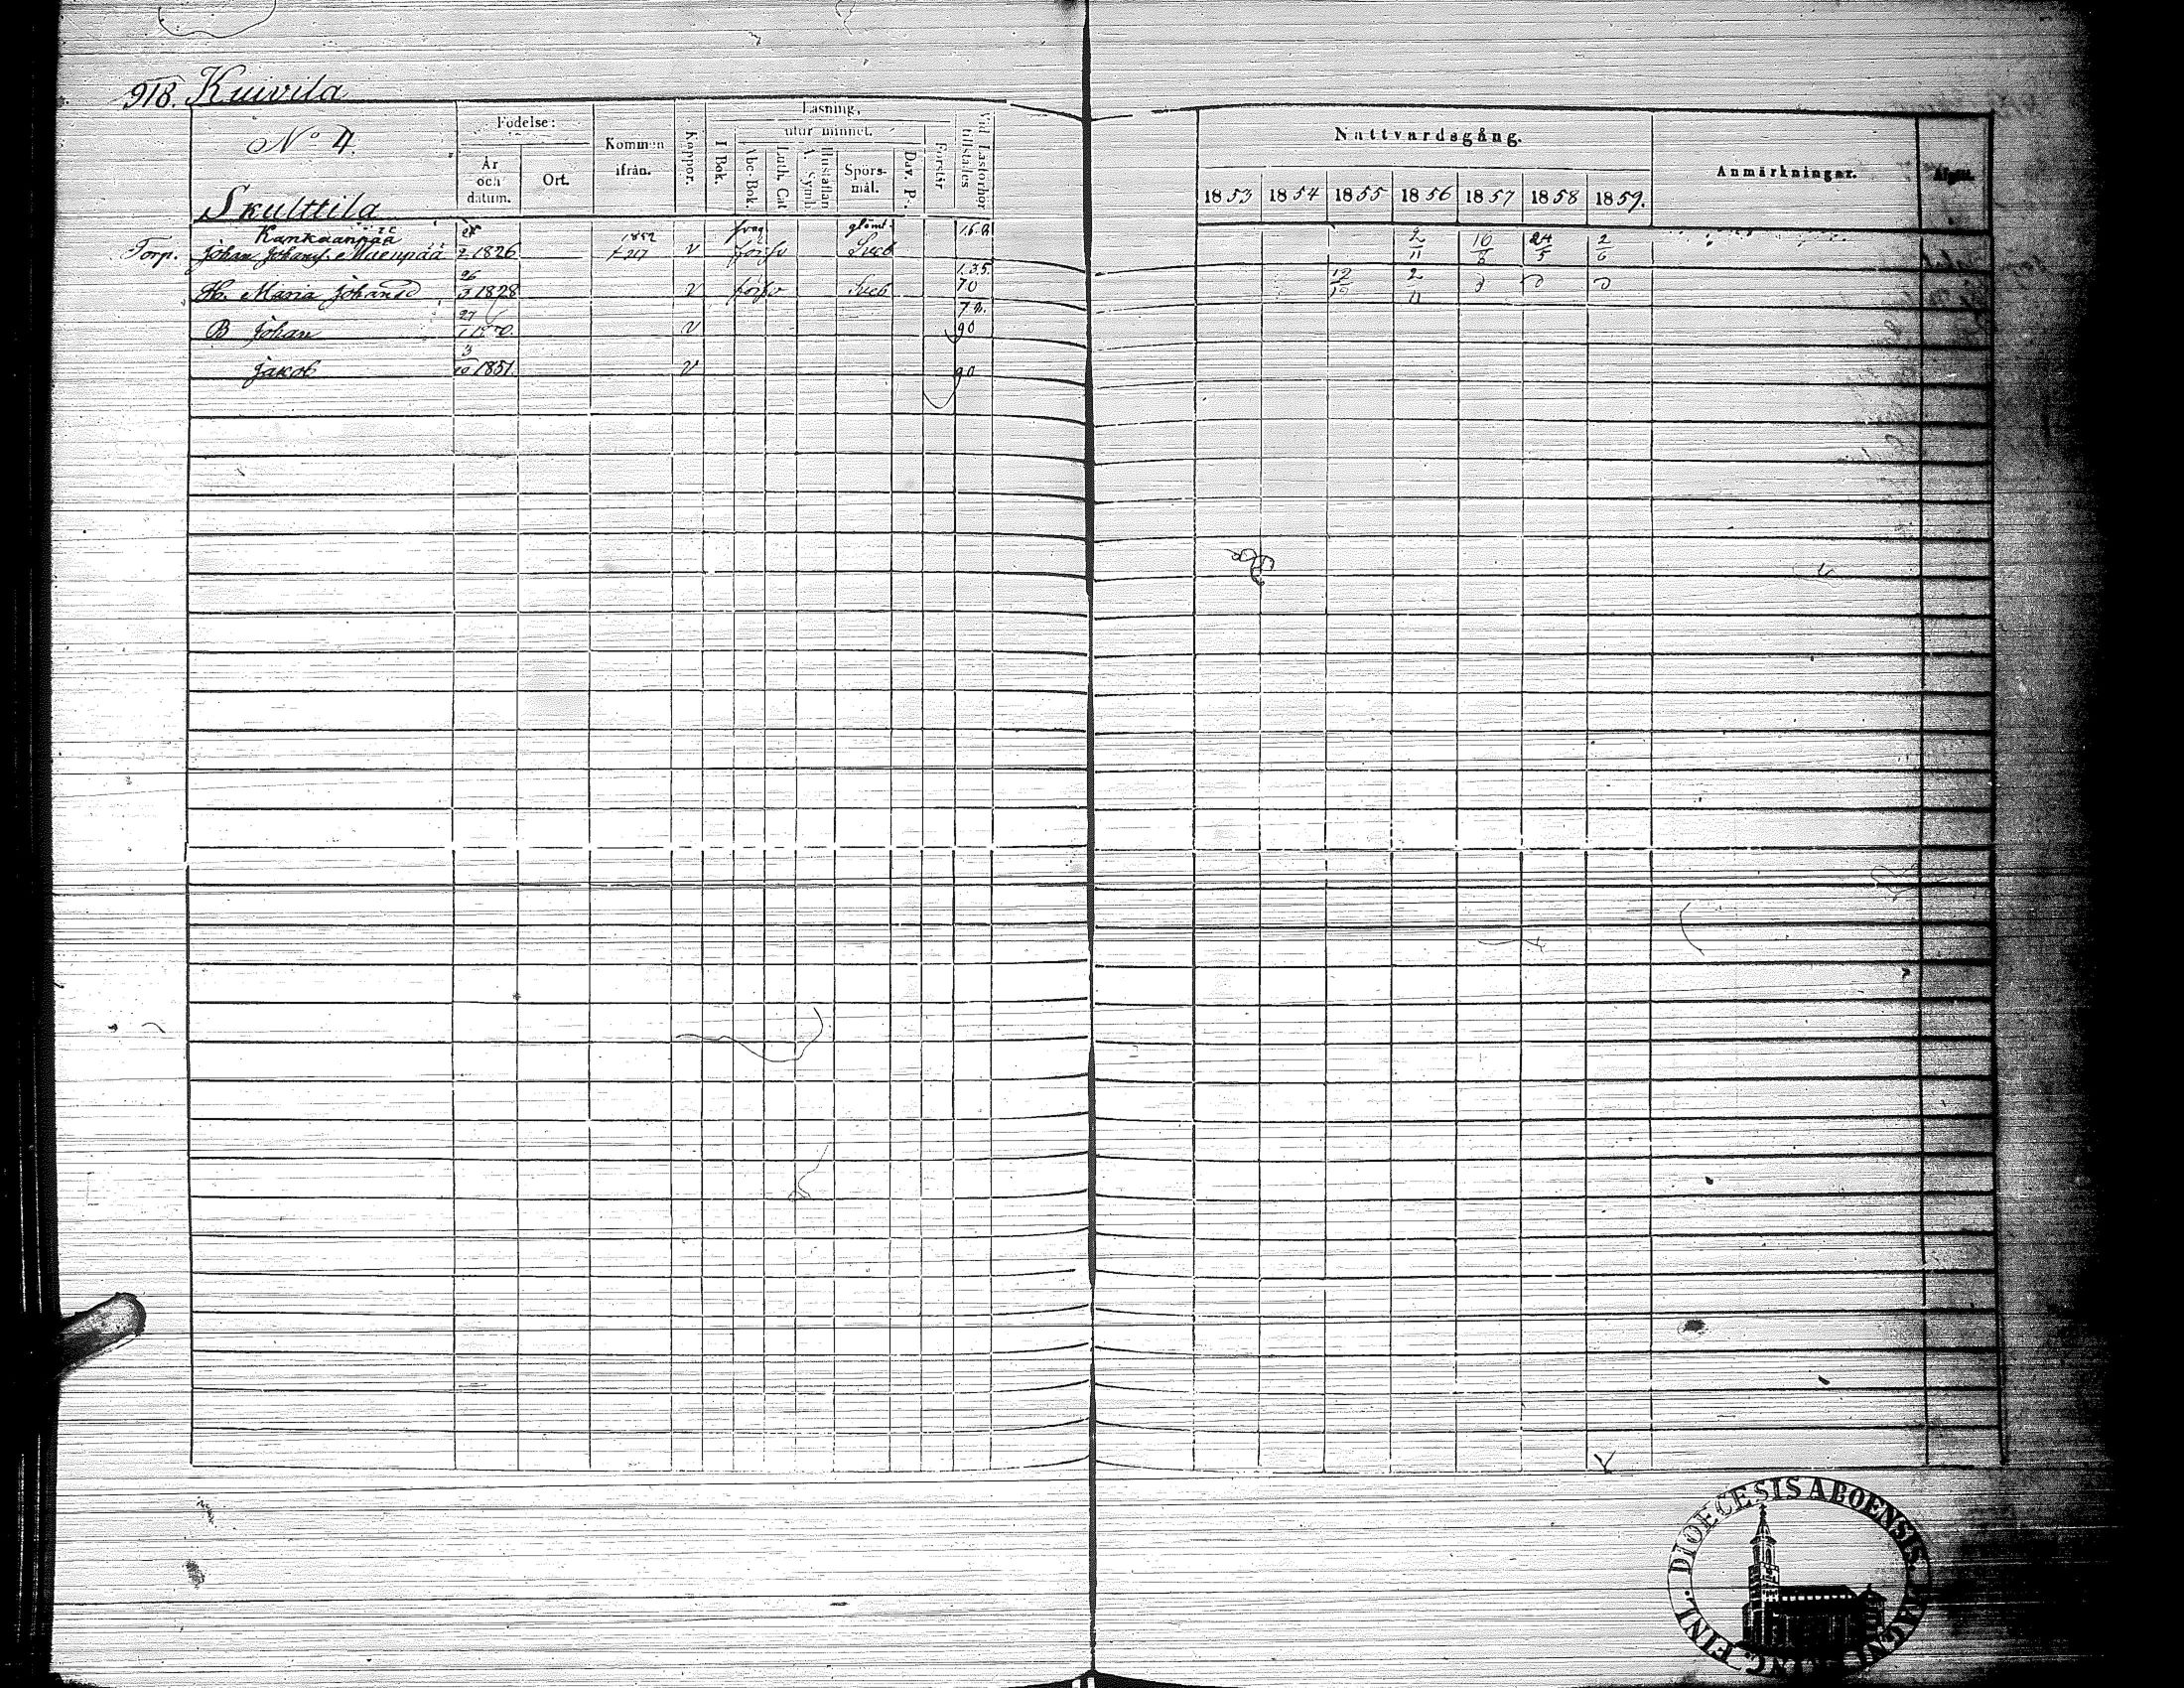 918. Kuivila
No 4.
Skulttila
Födelse:
År och datum.
Ort.
Kommen ifrån.
Koppor.
Läsning,
I Bok.
utur minnet.
Abc-Bok.
Luth. Cat
Hustaflan A. Symb.
Spörs-mål.
Dav. P.
Förstår
Vid Läsförhör tillstädes
Nattvardsgång.
1853 1854 1855 1856 1857 1858 1859.
Anmärkningar.
Afgått.
Kankaanpää
Torp. Johan Johans. Mäenpää 2 1826 1852 f 217 v försv glömt Sveb 2/11 10/8 24/5 2/6
Hu. Maria Johansd 26/3 1828 v försv Sveb 70 2/11
B Johan 27/1 v 90
Jakob 3/10 1851. v 90
DIOECESIS ABOENSIS
FINL.